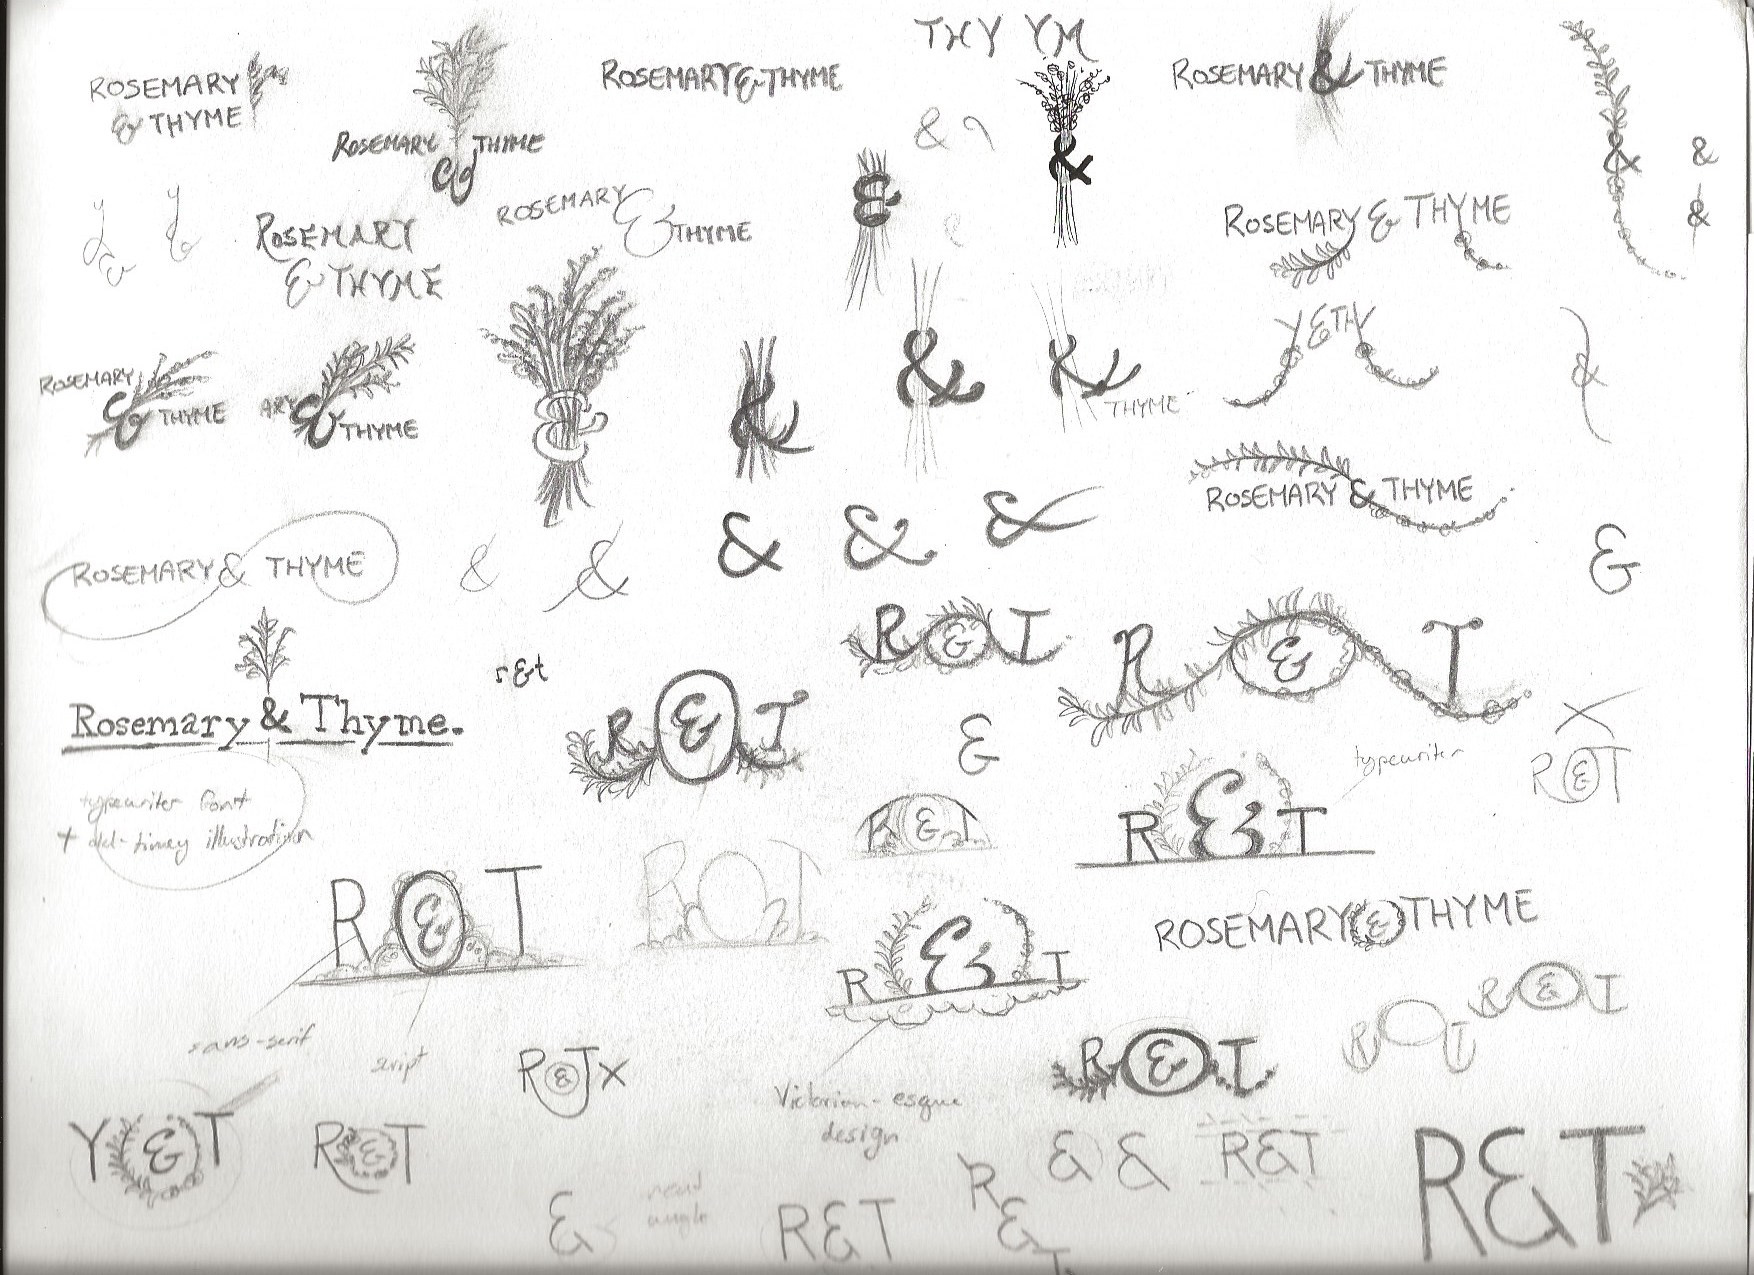 THY YM
ROSEMARY
& THYME
ROSEMARY & THYME
ROSEMARY & THYME
&
ROSEMARY & THYME
&
&
&
&
ROSEMARY
& THYME
ROSEMARY & THYME
&
ROSEMARY & THYME
ROSEMARY
& THYME
ARY
& THYME
&
&
&
&
THYME
Y & TH
&
ROSEMARY & THYME
ROSEMARY & THYME
&
&
&
&
&
&
R & T
R & T
Rosemary & Thyme.
r&t
R & T
&
typewriter
R & T
typewriter font
+ old-timey illustration
R & T
R & T
R & T
R T
R & T
ROSEMARY & THYME
R & T
R T
sans-serif
script
R & T X
R & T
Victorian-esque
design
Y & T
R & T
& &
R & T
R & T
&
R & T
R
&
T